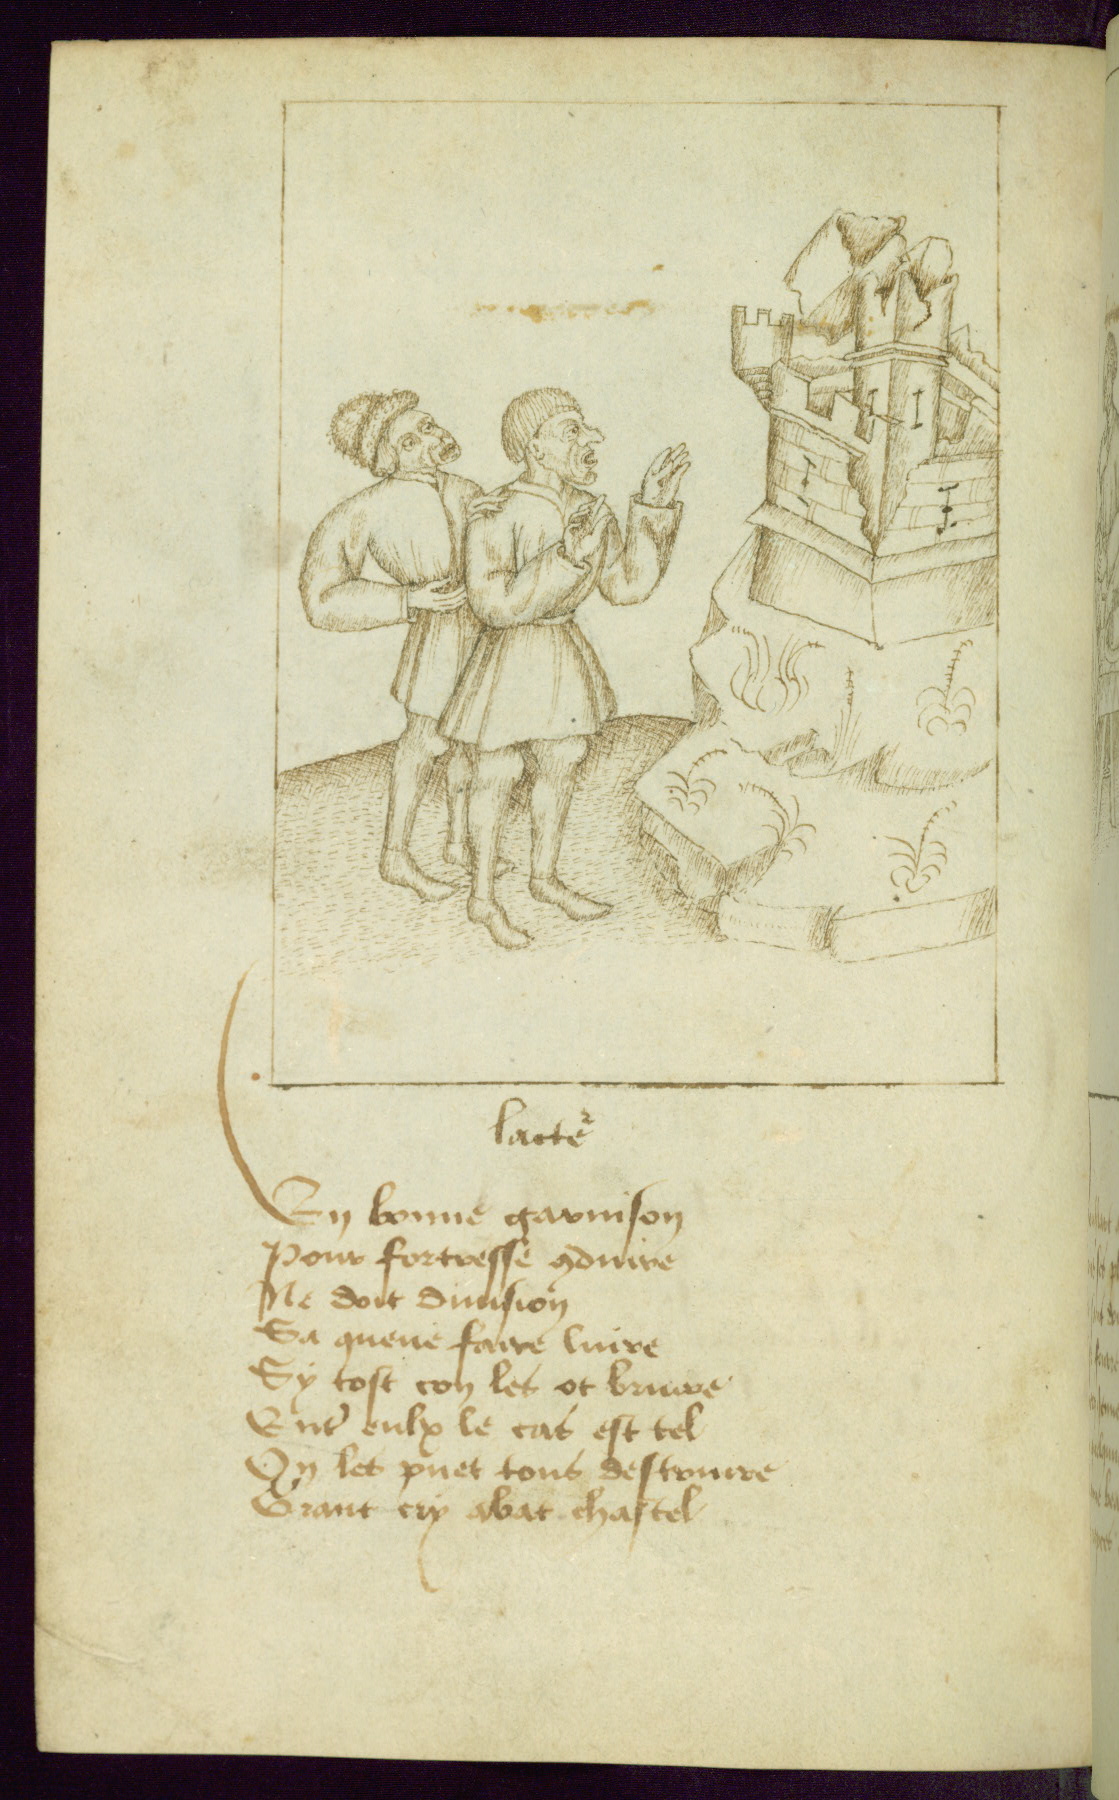 lacte²
En bonne garnison
Pour fortresse 9duire
Ne doit diuision
Sa queue faire luire
Sy tost con les ot bruire
Ent' eulx le cas est tel
On les puet tous destruire
Grant cry abat chastel